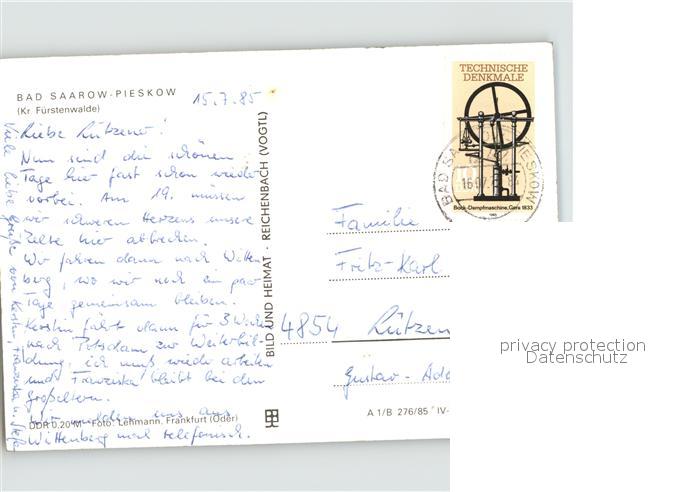 BAD SAAROW-PIESKOW
(Kr. Fürstenwalde)
15.7.85
Liebe Lützener!
Nun sind die schönen
Tage hier fast schon wieder
vorbei. Am 19. müssen
wir schweren Herzens unsere
Zelte hier abbrechen.
Wir fahren dann nach Witten-
berg, wo wir noch ein paar
Tage gemeinsam bleiben.
Kerstin fährt dann für 3 Wochen
nach Potsdam zur Weiterbil-
dung, ich muß wieder arbeiten
und Franziska bleibt bei den
Großeltern.
Wir melden uns aus
Wittenberg mal telefonisch.
Viele liebe Grüße von Kerstin, Franziska u.
DDR 0,20 M · Foto: Lehmann, Frankfurt (Oder)
BILD UND HEIMAT · REICHENBACH (VOGTL)
TECHNISCHE
DENKMALE
Bock-Dampfmaschine, Gera 1833
1985
BAD SAAROW-PIESKOW
Familie
Fritz-Karl
4854 Lützen
Gustav-Ado
A 1/B 276/85 IV-
privacy protection
Datenschutz